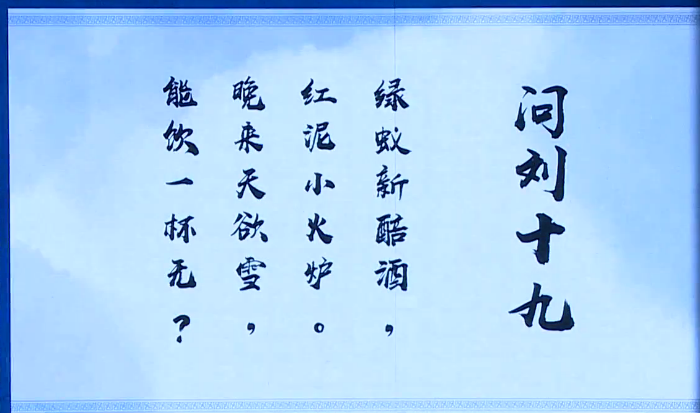 问刘十九
绿蚁新醅酒，
红泥小火炉。
晚来天欲雪，
能饮一杯无？